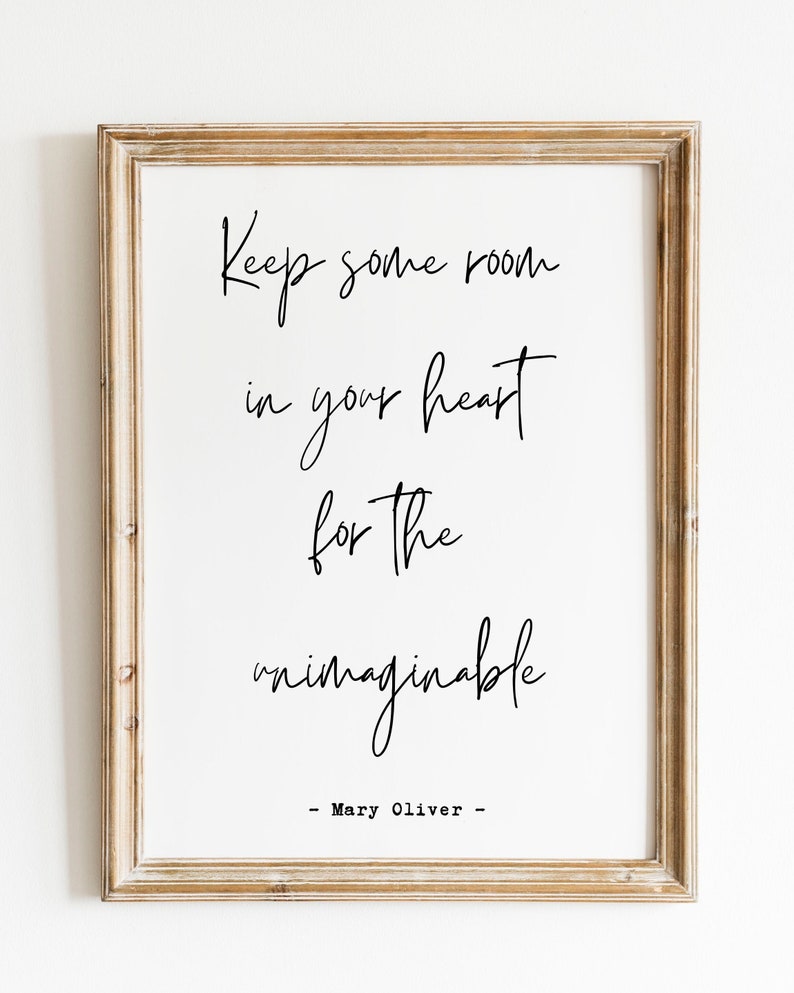 Keep some room
in your heart
for the
unimaginable
- Mary Oliver -